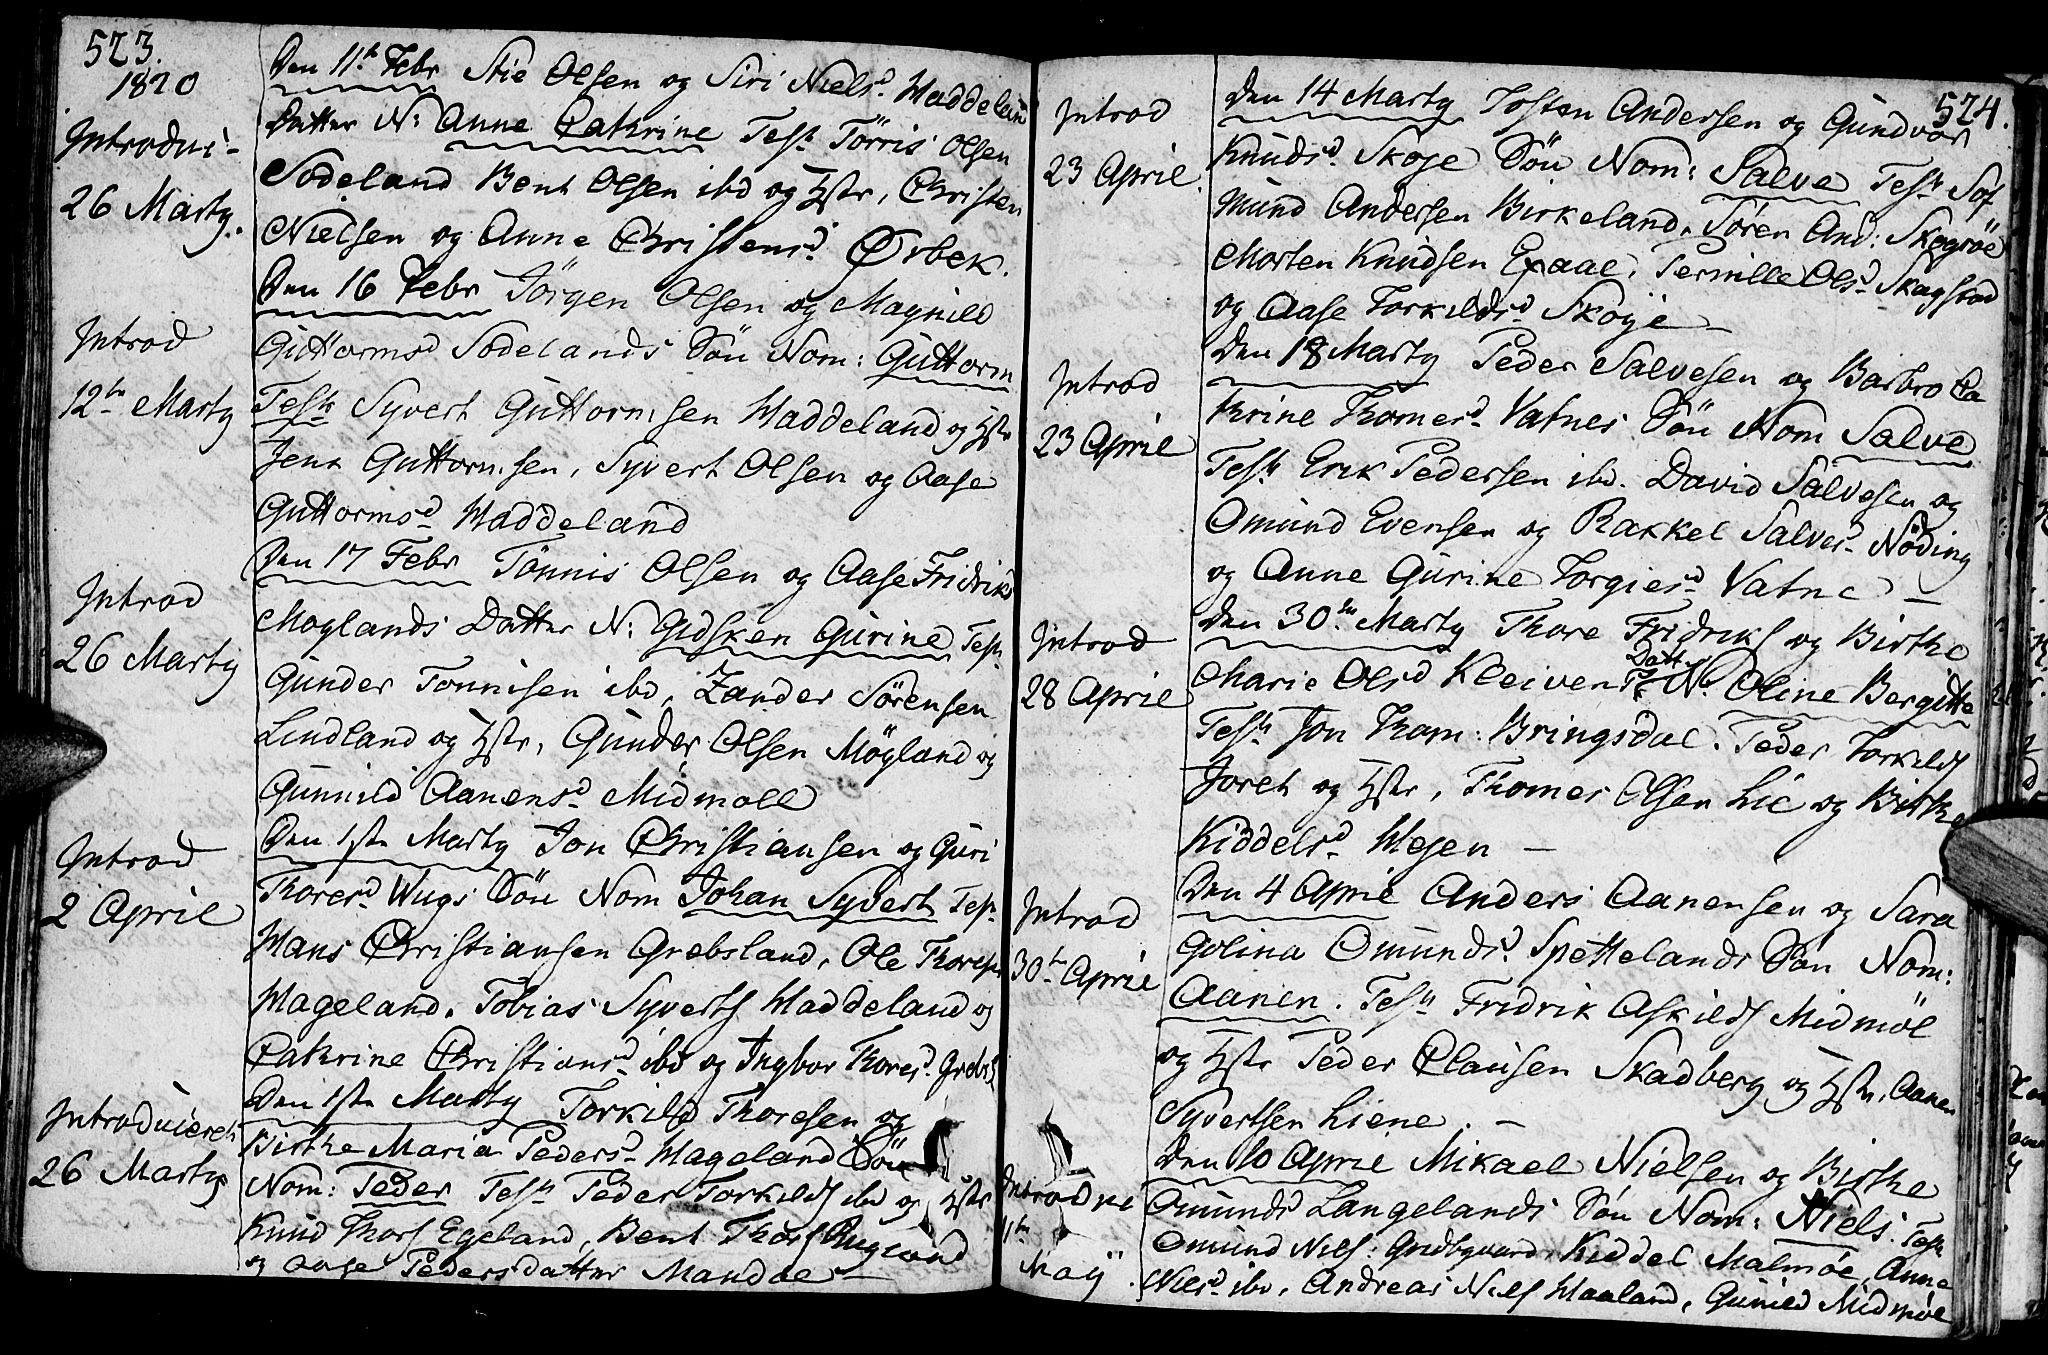 523.
1820
Introdui-
26 Marty.
Den 11te Febr Stie Olsen og Siri Nielsd Haddeland
Datter N: Anne Cathrine Test Törris Olsen
Sodeland Bent Olsen ibd og Hstr, Christen
Nielsen og Anne Christensd Ørbek.
Introd
12te Marty
Den 16 Febr Jörgen Olsen og Magnild
Guttormsd Sodelands Sön Nom: Guttorm
Test Syvert Guttormsen Haddeland og Hstr
Jens Guttormsen, Syvert Olsen og Aase
Guttormsd Haddeland
Introd
26 Marty
Den 17 Febr Tönnis Olsen og Aase Fridriks
Moglands Datter N: Gidsken Gurine Test
Gunder Tonnisen ibd, Zander Sörensen
Lindland og Hstr, Gunder Olsen Mögland og
Gunnild Aanensd Midmoll
Introd
2 April
Den 1ste Marty Jon Christiansen og Guri
Thoresd Wugs Sön Nom Johan Syvert Test
Hans Christiansen Grebsland, Ole Thores
Hageland. Tobias Syverts Haddeland og
Cathrine Christiansd ibd og Ingbor Thoresd Grebs
Introduceret
26 Marty
Den 1ste Marty Torkild Thoresen og
Birthe Maria Pedersd Hageland Sön
Nom: Peder Test Peder Torkilds ibd og Hstr
Knud Thors Egeland, Bent Thors
og Aase Pedersdatter Mandal —
524.
Introd
23 April.
Den 14 Marty Josten Andersen og Gundvor
Knudsd Skoje Sön Nom: Salve Test Sof
mund Andersen Birkeland, Sören And: Skogsöe
Morten Knudsen Epaae, Pernille Olsd Skagstad
og Aase Torkildsd Skoje —
Introd
23 April
Den 18 Marty Peder Salvesen og Barbro Ca
thrine Thomesd Vatnes Sön Nom Salve
Test Erik Pedersen ibd. David Salvesen og
Omund Evensen og Rakkel Salvesd Nöding
og Anne Gurine Torgiesd Vatne —
Introd
28 April
Den 30te Marty Thore Fridriks og Birthe
Marie Olsd Kleiven Datt N. Oline Bergitte
Test Jon Thom: Bringsdal. Peder Torkilds
Joreh og Hstr, Thomes Olsen Lie og Birthe
Kiddelsd Hesen —
Introd
30te April
Den 4 April Anders Aanensen og Sara
Golina Omundsd Spettelands Sön Nom:
Aanen. Test Fridrik Askilds Midmöl
og Hstr Peder Clausen Skadberg og Hstr, Aanen
Syvertsen Liene. —
Introdue
11te
May.
Den 10 April Mikael Nielsen og Birthe
Omundsd Langelands Sön Nom: Niels. Test
Omund Niels: Gridbgaard, Kiddel Malmöe, Anne
Nielsd ibd, Andreas Niels Haaland, Gunild Midmöl